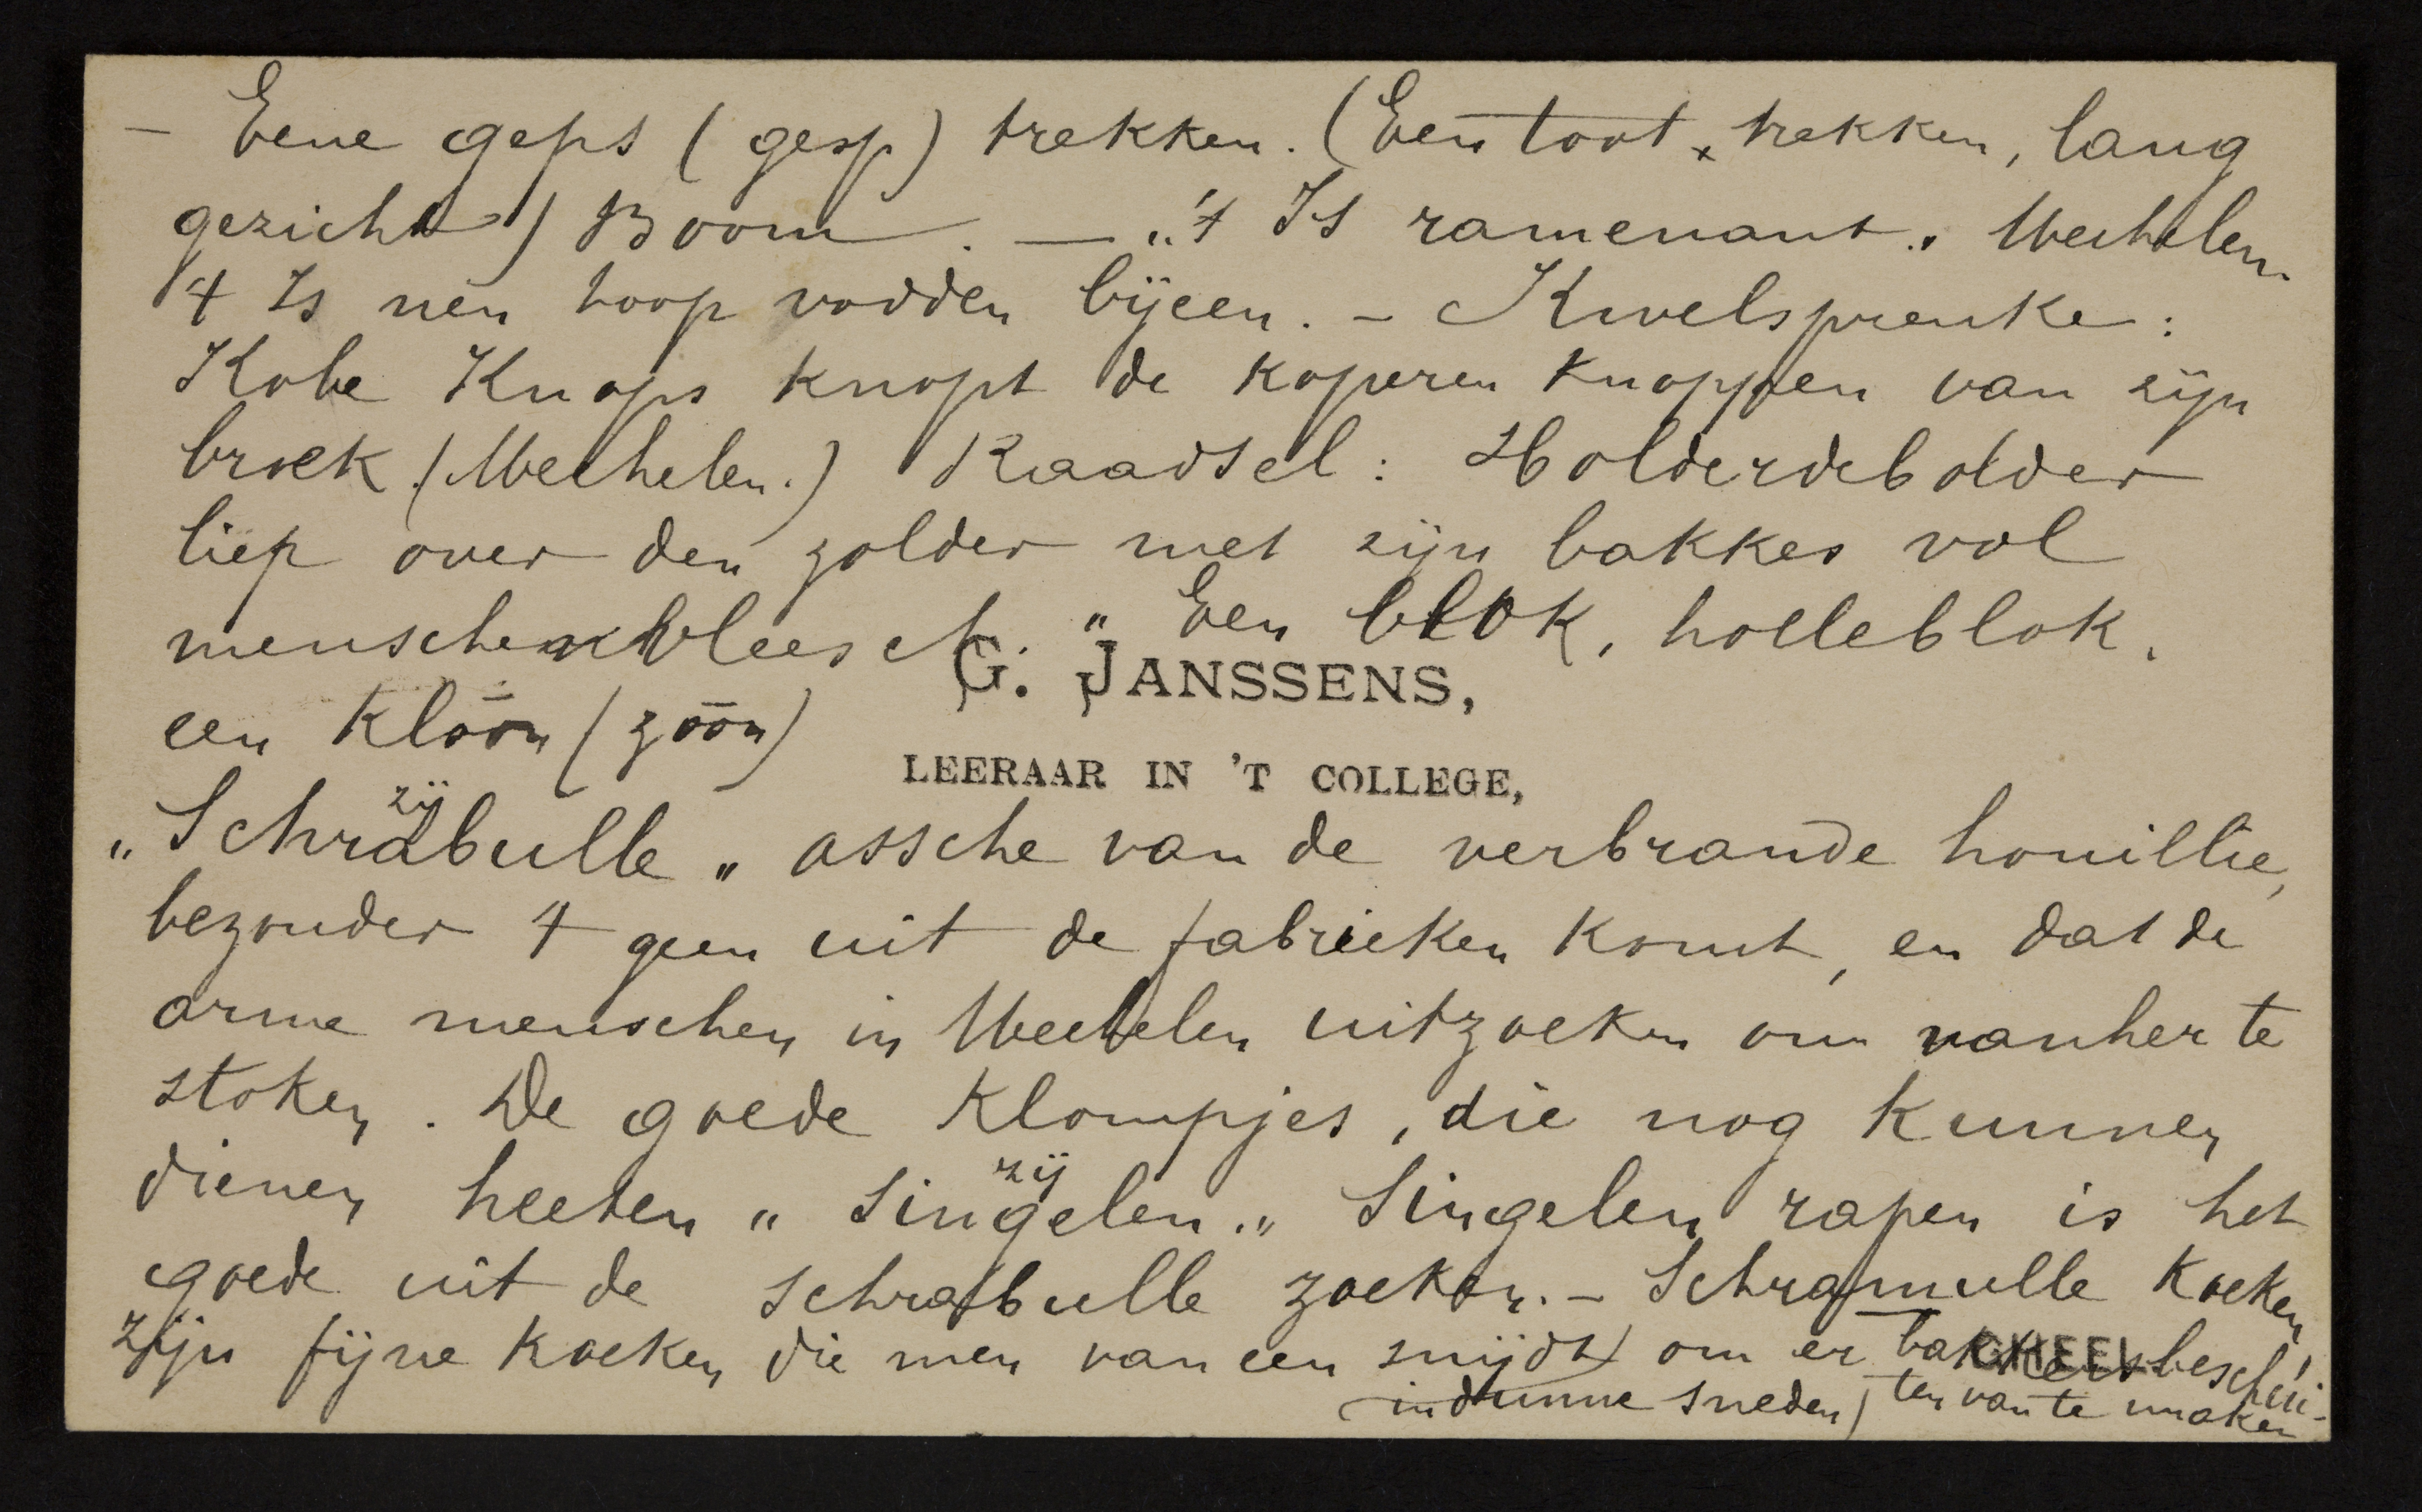 — Eene geps (gesp) trekken. (Een toot x trekken, lang
gezicht) Boom. — „'t Is ramenant„ Mechelen.
't Is nen hoop vodden bijeen. — Kwelspreuke:
Kobe Knops knopt de koperen knoppen van zijn
broek. (Mechelen.) Raadsel: Holderdebolder
liep over den zolder met zijn bakkes vol
menschenvleesch. „ Een blok, holleblok.
G. JANSSENS,
een klōōn (zōōn)
LEERAAR IN 'T COLLEGE,
zij
„Schrabulle„ assche van de verbrande houillie,
bezonder 't geen uit de fabrieken komt, en dat de
arme menschen in Mechelen uitzoeken om vanher te
stoken. De goede klompjes, die nog kunnen
zij
dienen heeten „Singelen.„ Singelen rapen is het
goede uit de schrabulle zoeken. — Schramulle koeken
zijn fijne koeken die men van een snijdt om er bakkersbeschui-
GHEEL
(in dunne sneden) ten van te maken